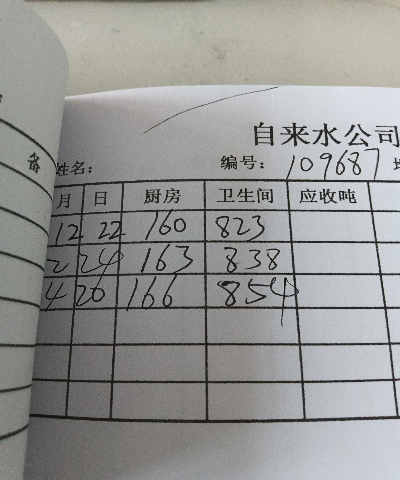 备
自来水公司
姓名： 编号：109687
月 日 厨房 卫生间 应收吨
12 22 160 823
2 24 163 838
4 20 166 854